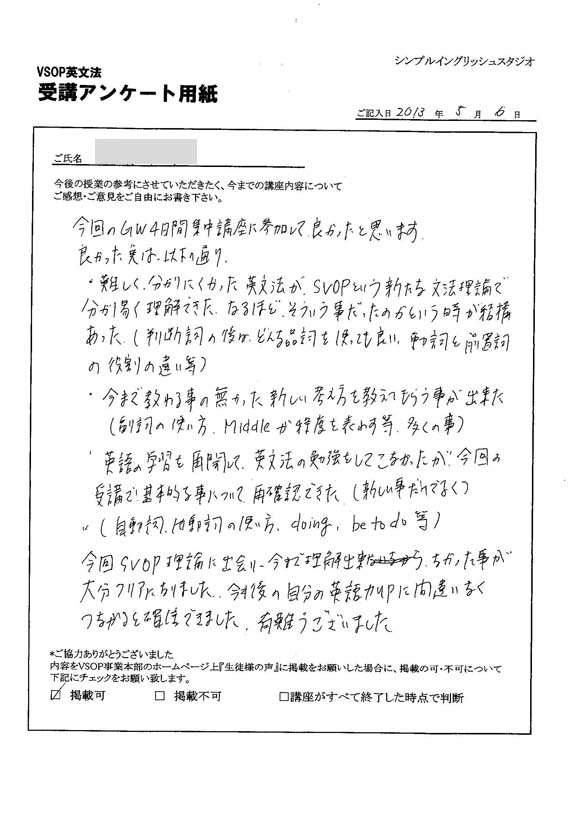 シンプルイングリッシュスタジオ
VSOP英文法
受講アンケート用紙
ご記入日 2013 年 5 月 6 日
ご氏名
今後の授業の参考にさせていただきたく、今までの講座内容について
ご感想・ご意見をご自由にお書き下さい。
今回のGW4日間集中講座に参加して良かったと思います。
良かった実は、以下の通り。
・難しく、分かりにくかった英文法が、SVOPという新たな文法理論で
分か易く理解できた。なるほど、そういう事だったのかという時が結構
あった。(判断詞の後は、どんな品詞を使っても良い、動詞と前置詞
の役割の違い等)
・今まで教わる事の無かった新しい考え方を教えてもらう事が出来た
(副詞の使い方、Middleが程度を表わす等、多くの事)
・英語の学習を再開して、英文法の勉強をしてこなかったが、今回の
受講で基本的な事について、再確認できた。(新しい事だけでなく)
〃(自動詞、他動詞の使い方、doing, be to do 等)
今回SVOP理論に出会い、今まで理解出来なかった事が
大分クリアになりました。今後の自分の英語力UPに間違いなく
つながると確信できました。有難うございました
*ご協力ありがとうございました
内容をVSOP事業本部のホームページ上『生徒様の声』に掲載をお願いした場合に、掲載の可・不可について
下記にチェックをお願い致します。
☑ 掲載可 □ 掲載不可 □講座がすべて終了した時点で判断